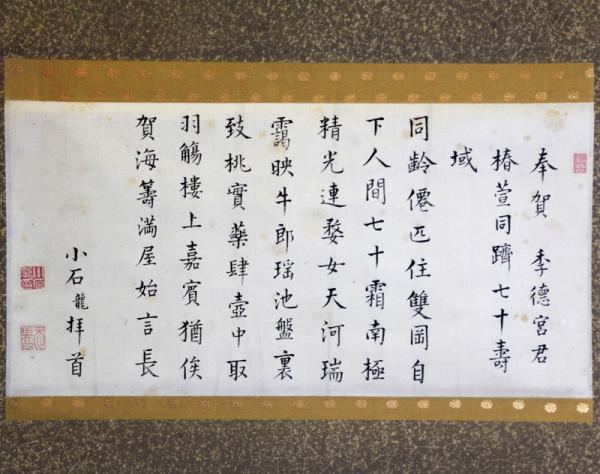 奉賀 季德宮君
椿萱同躋七十壽
域
同齡僊匹住雙岡自
下人間七十霜南極
精光連婺女天河瑞
靄映牛郎瑶池盤裏
致桃實藥肆壺中取
羽觴樓上嘉賓猶俟
賀海籌滿屋始言長
小石龍拜首